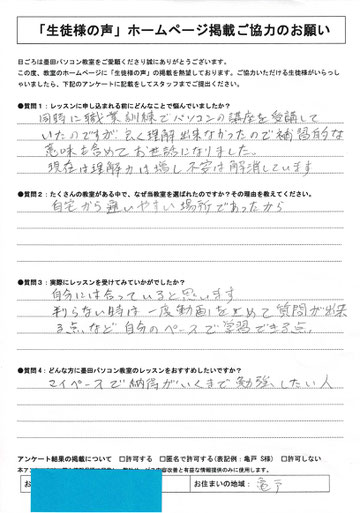 「生徒様の声」ホームページ掲載ご協力のお願い
日ごろは墨田パソコン教室をご愛顧くださり誠にありがとうございます。
この度、教室のホームページに「生徒様の声」の掲載を熱望しております。ご協力いただける生徒様がいらっし
ゃいましたら、下記のアンケートに記載をしてスタッフまでご提出ください。
●質問1：レッスンに申し込まれる前にどんなことで悩んでいましたか？
同時に職業訓練でパソコンの講座を受講して
いたのですが良く理解出来なかったので補習的な
意味も含めてお世話になりました。
現在は理解力は増し不安は解消しています
●質問2：たくさんの教室がある中で、なぜ当教室を選ばれたのですか？その理由を教えてください。
自宅から通いやすい場所であったから
●質問3：実際にレッスンを受けてみていかがでしたか？
自分には合っていると思います
判らない時は一度動画をとめて質問が出来
る点など自分のペースで学習できる点。
●質問4：どんな方に墨田パソコン教室のレッスンをおすすめしたいですか？
マイペースで納得がいくまで勉強したい人
アンケート結果の掲載について □許可する □匿名で許可する(表記例：亀戸 S様) □許可しない
お住まいの地域：亀戸